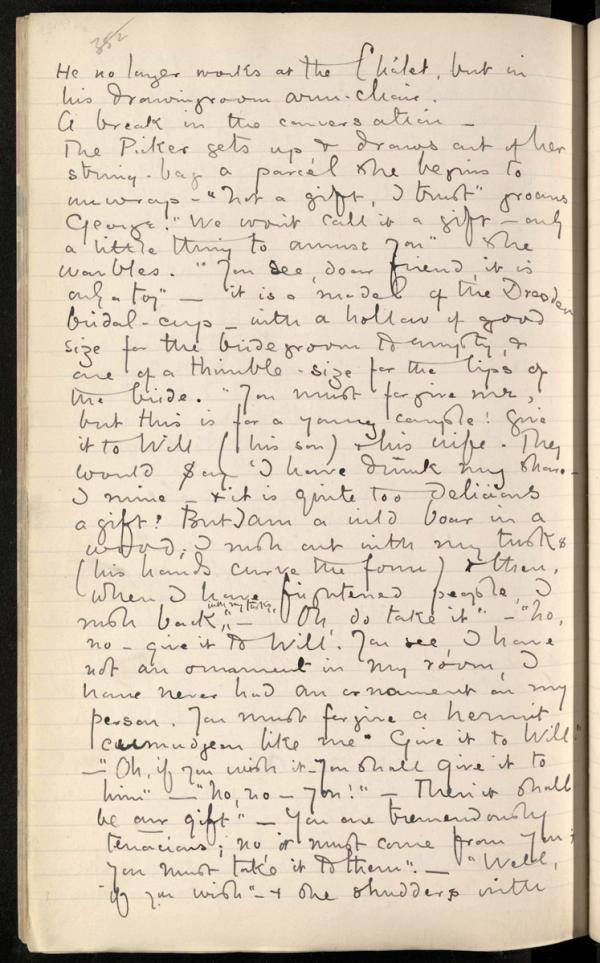 352
He no longer works at the Châlet, but in
his drawingroom arm-chair.
A break in the conversation —
The Picker gets up & draws out of her
string-bag a parcel & she begins to
unwrap — "Not a gift, I trust" groans
George. "We won't call it a gift — only
a little thing to amuse you" she
warbles. "You see, dear friend, it is
only a toy" — it is a model of the Dresden
bridal-cup — with a hollow of good
size for the bridegroom to empty, &
one of a thimble-size for the lips of
the bride. "You must forgive me,
but this is for a young couple! Give
it to Will (his son) & his wife. They
would say 'I have drunk my share —
I mine — & it is quite too delicious
a gift! But I am a wild boar in a
wood; I rush out with my tusks
(his hands curve the form) & then,
when I have frightened people, I
rush back with my tusks." — "Oh, do take it" — "No,
no — give it to Will. You see, I have
not an ornament in my room, I
have never had an ornament on my
person. You must forgive a hermit
curmudgeon like me. Give it to Will"
— "Oh, if you wish it — you shall give it to
him" — "No, no — you!" — Then it shall
be our gift" — You are tremendously
tenacious; no, it must come from you &
you must take it to them". — "Well,
if you wish" — & she shudders with